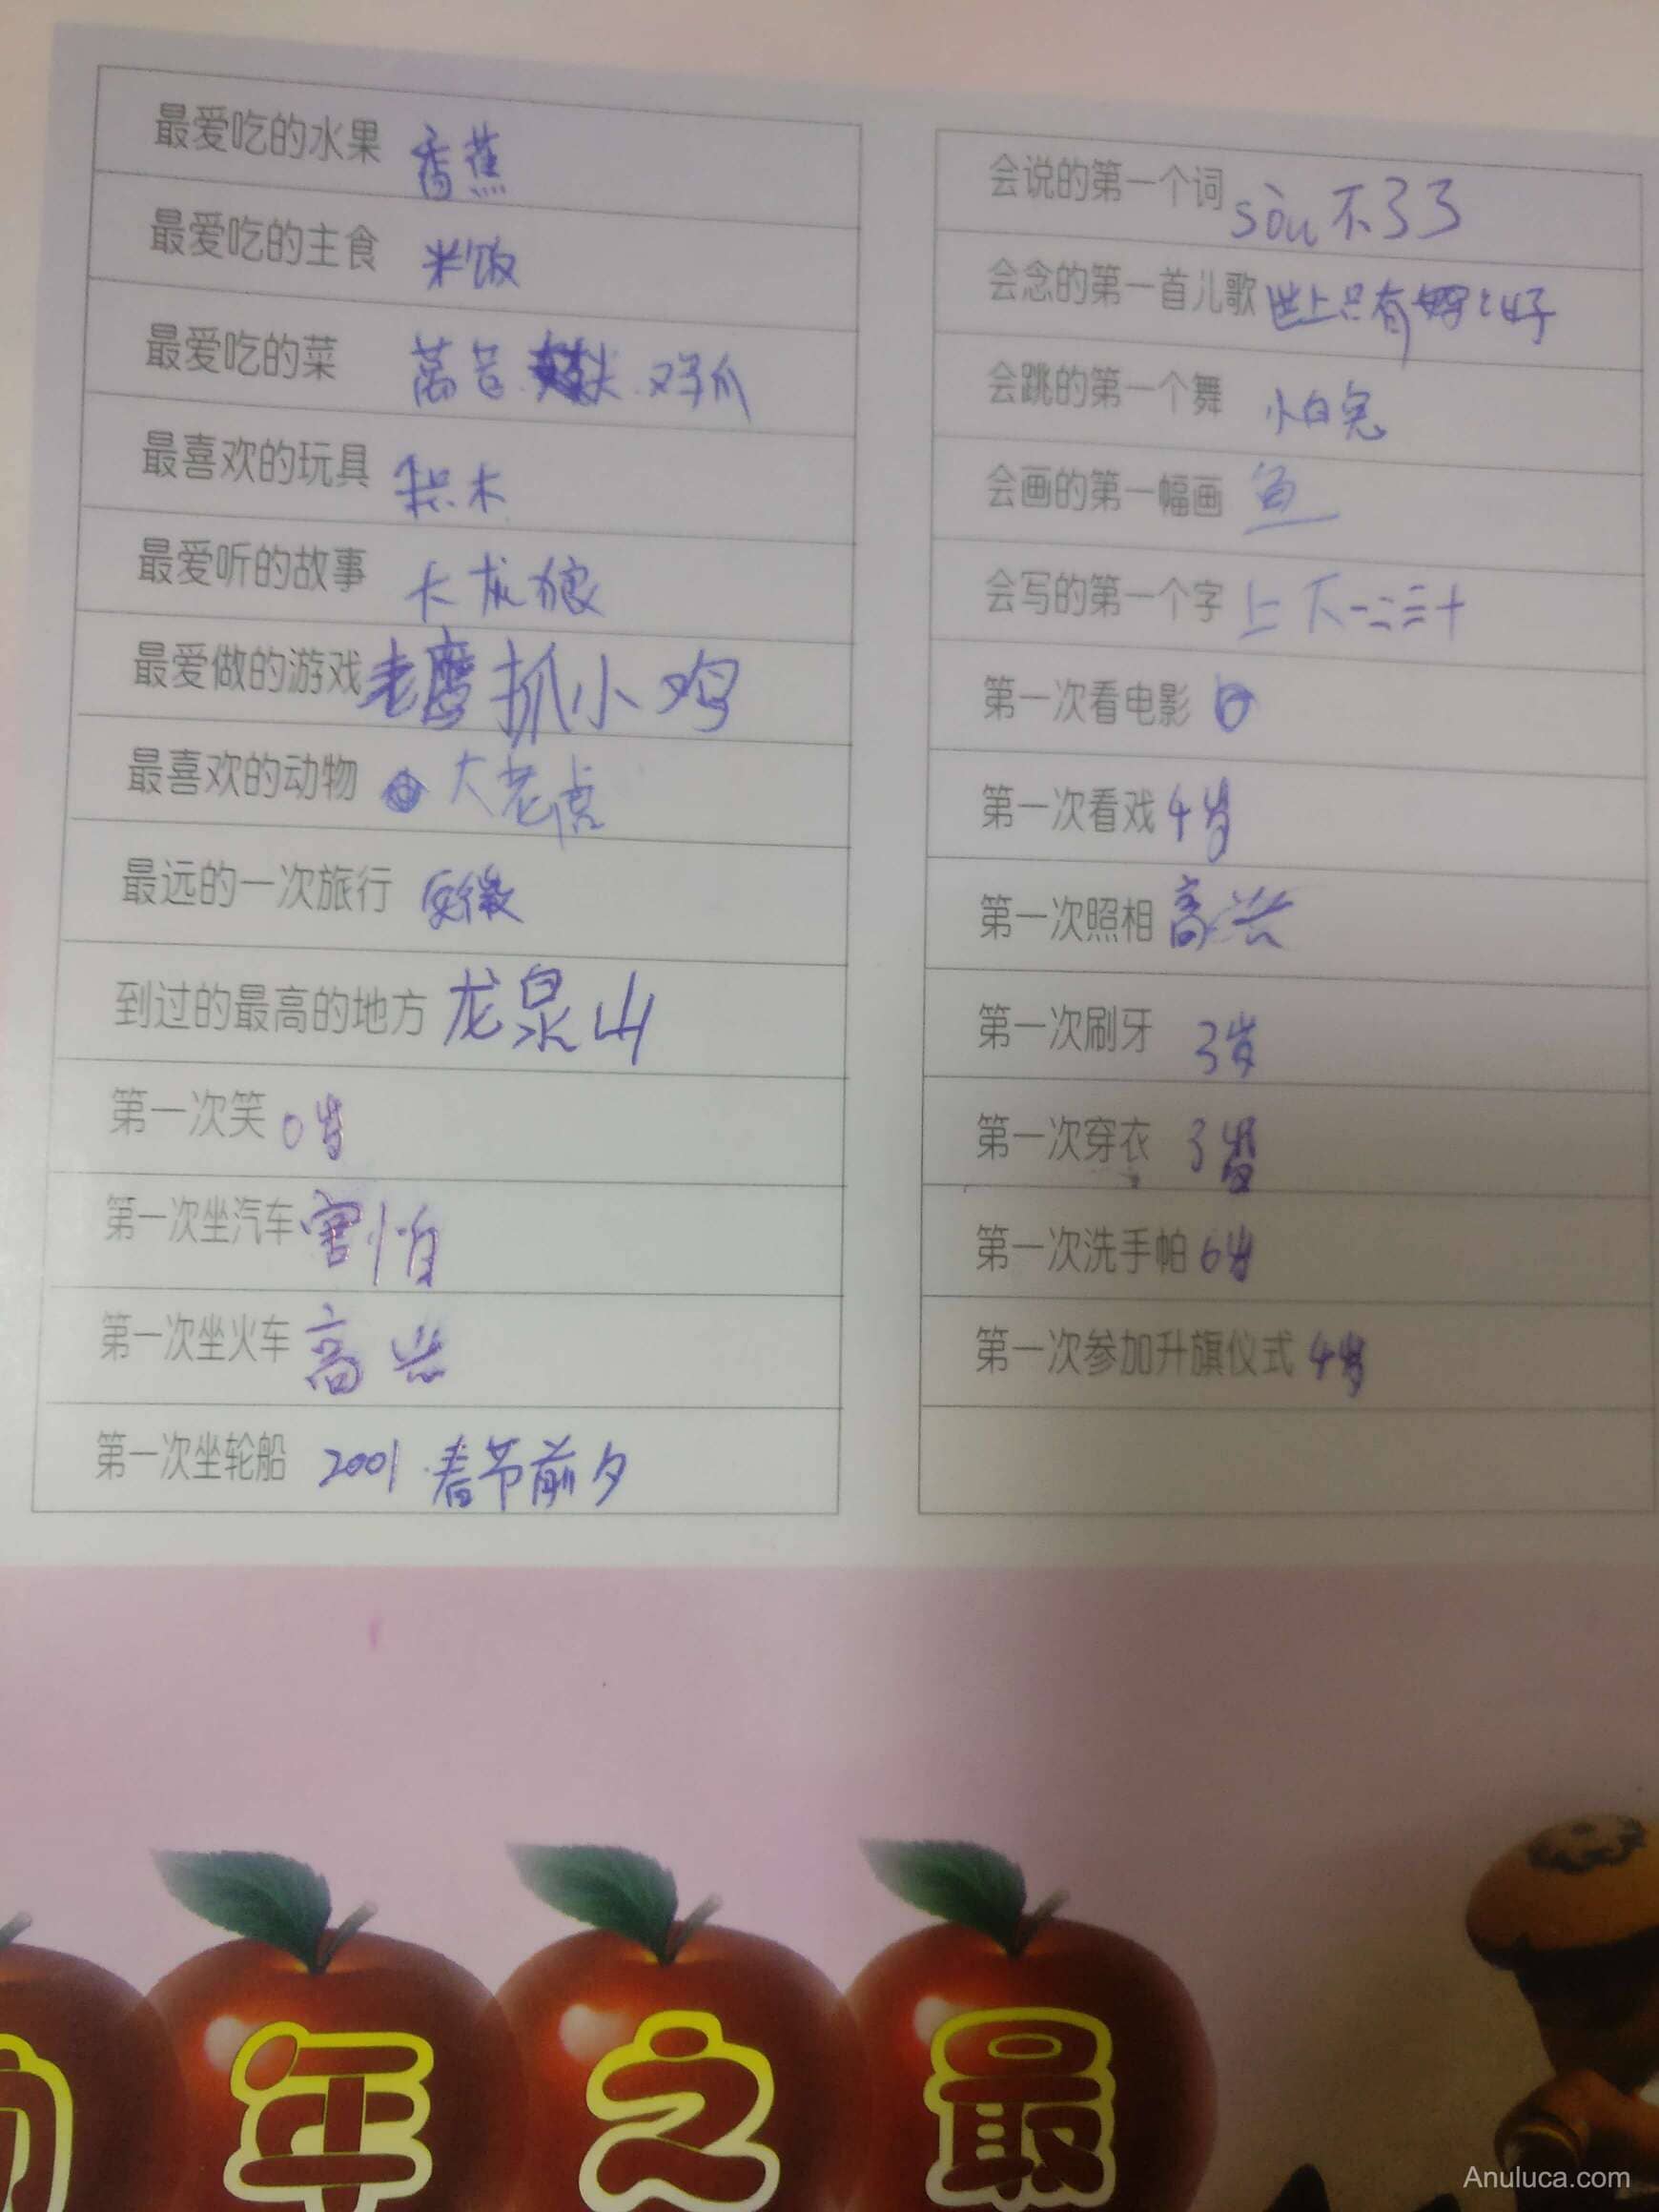 最爱吃的水果 香蕉
最爱吃的主食 米饭
最爱吃的菜 莴苣. 鸡爪
最喜欢的玩具 积木
最爱听的故事 大灰狼
最爱做的游戏 老鹰抓小鸡
最喜欢的动物 大老虎
最远的一次旅行 安徽
到过的最高的地方 龙泉山
第一次笑 0岁
第一次坐汽车 害怕
第一次坐火车 高兴
第一次坐轮船 2001.春节前夕
会说的第一个词 sòu不了了
会念的第一首儿歌 世上只有妈妈好
会跳的第一个舞 小白兔
会画的第一幅画 鱼
会写的第一个字 上下一二三十
第一次看电影
第一次看戏 4岁
第一次照相 高兴
第一次刷牙 3岁
第一次穿衣 3岁
第一次洗手帕 6岁
第一次参加升旗仪式 4岁
年之最
Anuluca.com